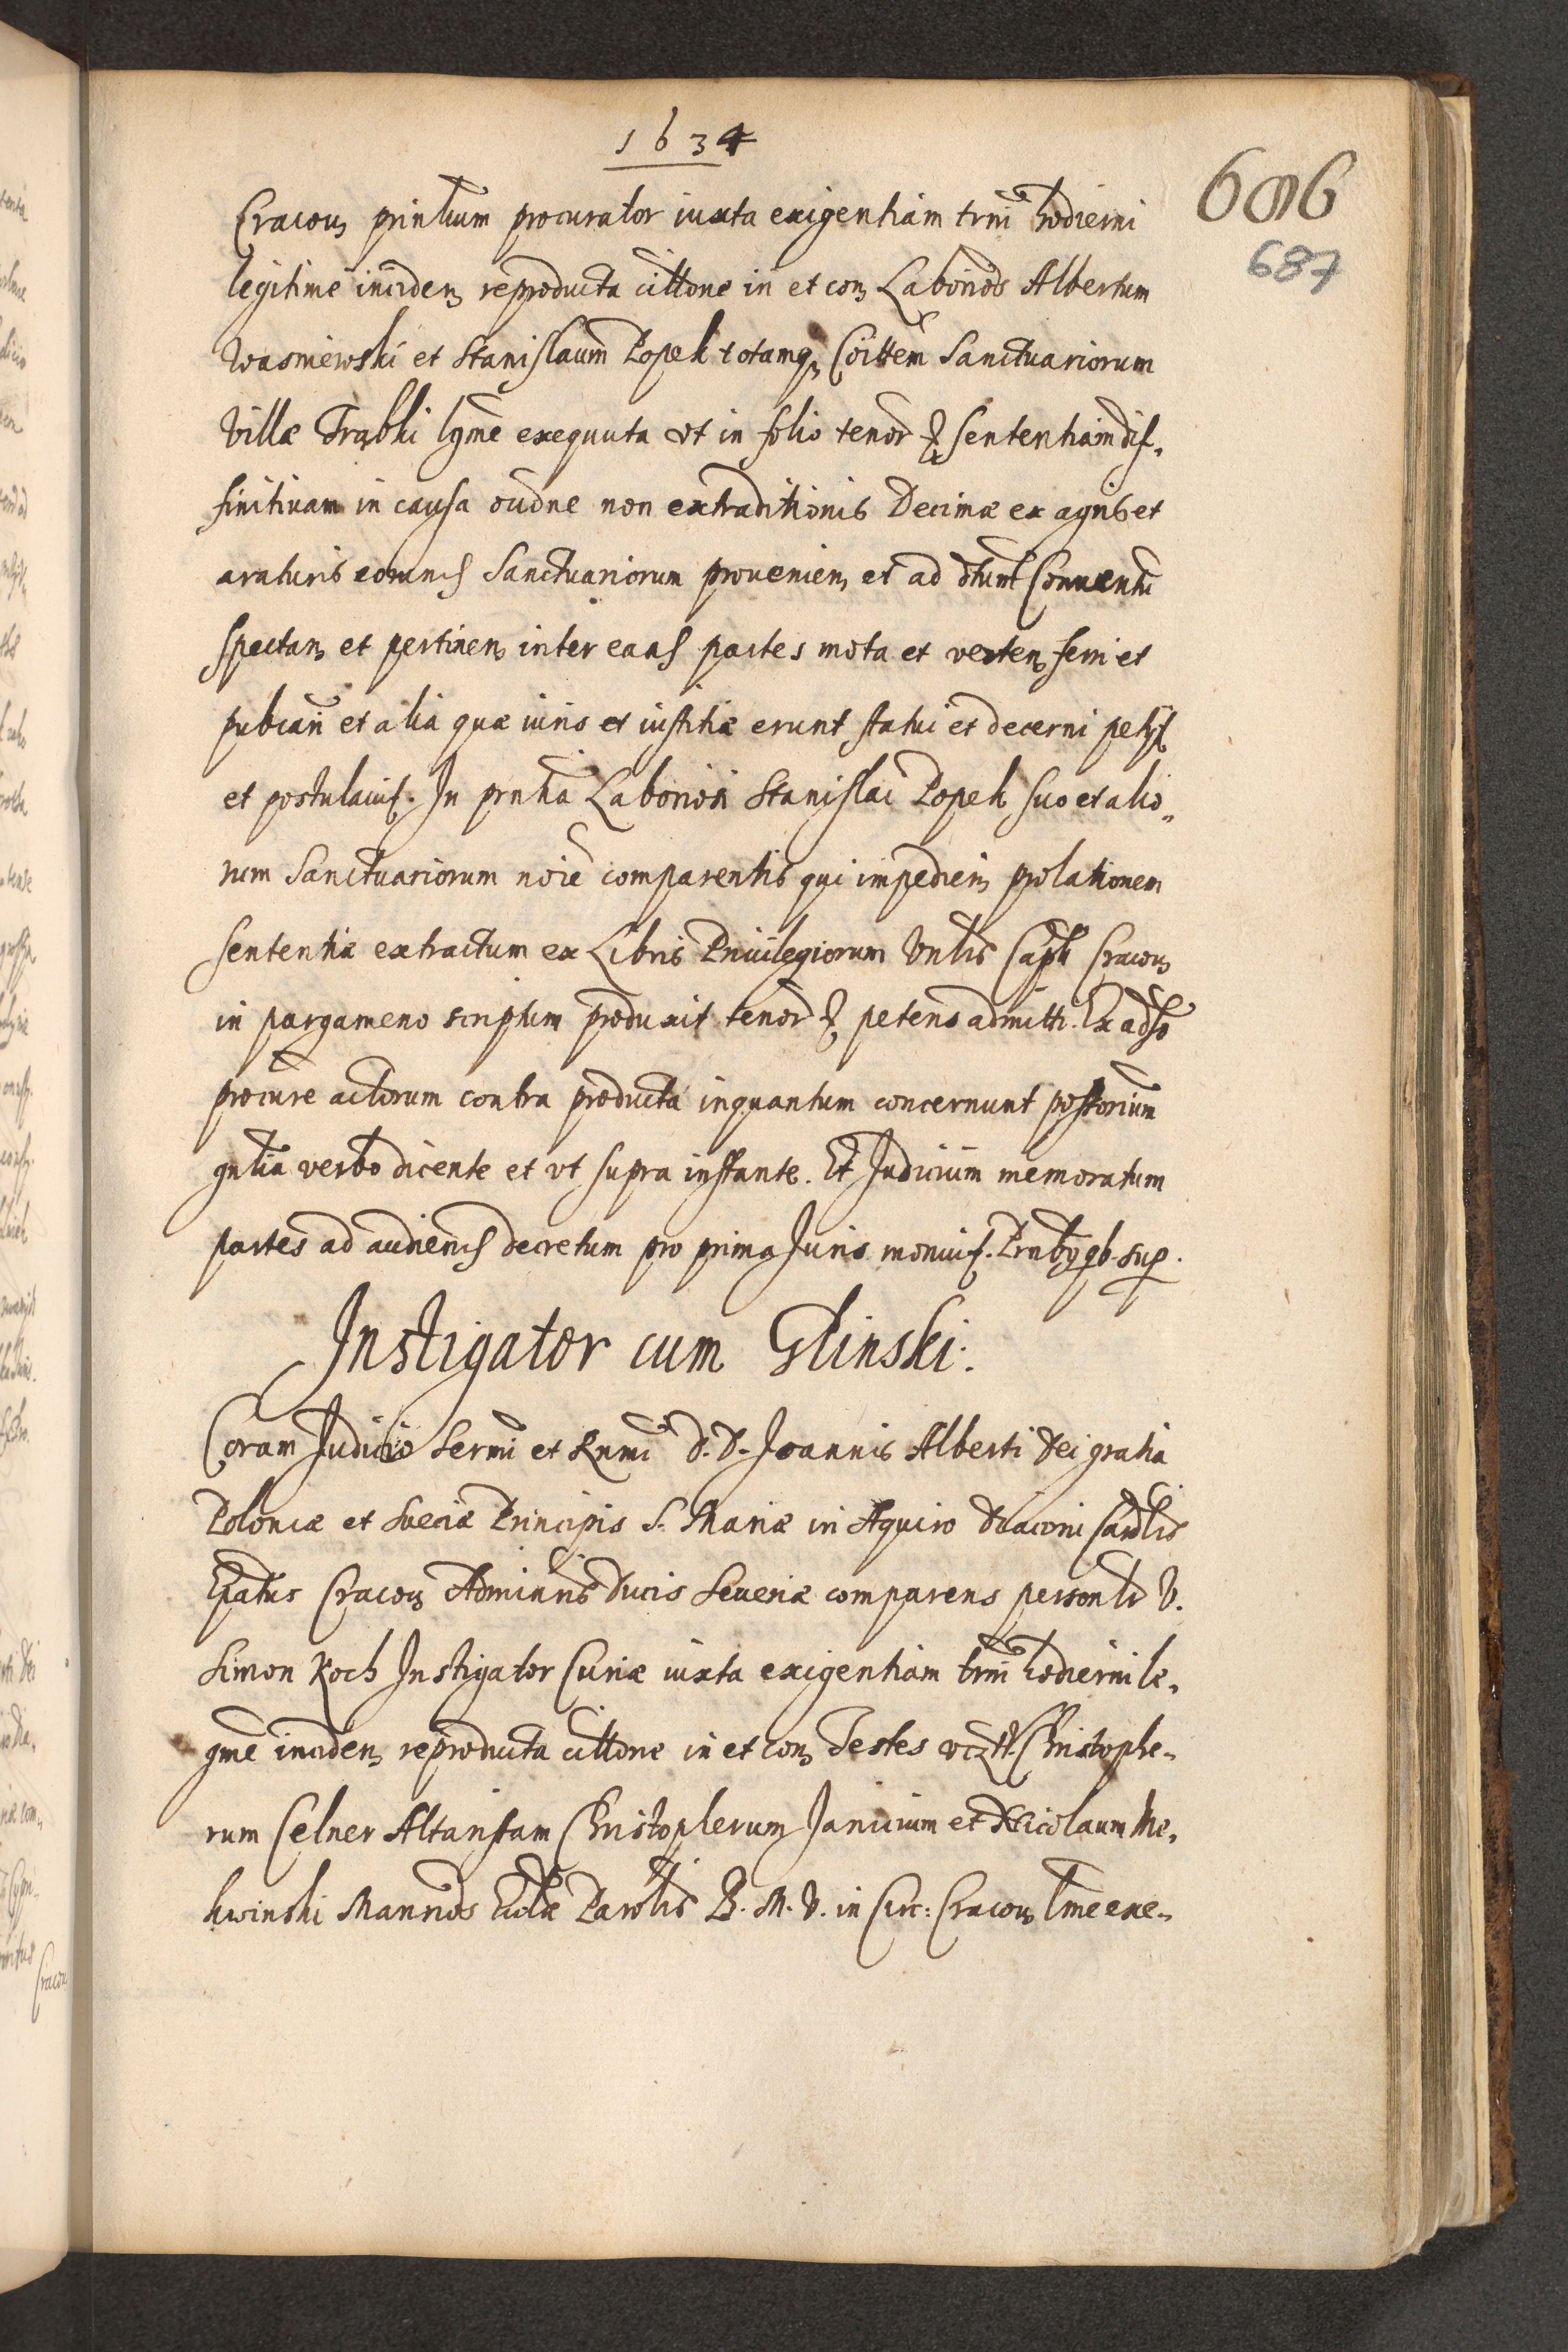 1634
606
687
Cracou printium procurator iuxta exigentiam trni hodierni
legitime incidem reproducta cittone in et con Laboriōs Albertum
Wasniewski et Stanislaum Popek totamq Coittem Sanctuariorum
Villæ Trąbki lgme exequuta vt in folio tenor & sententiam dif„
finitiuam in causa oudne non extraditionis Decimæ ex agris et
araturis eorund Sanctuariorum prouenien et ad dtum Conuentu
spectan et pertinen inter easd partes mota et verten ferri et
pubcari et alia quæ iuris et iustitiæ erunt statui et decerni petyt
et postulauit. In prntia Laboriosi Stanislai Popek suo et alio„
rum Sanctuariorum noie comparentis qui impedien prolationem
sententiæ extractum ex Libris Priuilegiorum Vnlis Capli Cracou
in pargameno scriptum produxit tenor & petens admitti. Ex adso
procure actorum contra producta inquantum concernunt possorium
gnlia verbo dicente et vt supra instante. Et Judicium memoratum
partes ad audiend decretum pro prima Juris monuit. Prntbg qb. sup.
Instigator cum Glinski.
Coram Judicio Sermi et Rnmi D. D. Joannis Alberti Dei gratia
Poloniæ et Sueciæ Principis S. Mariæ in Aquiro Diaconi Cardlis
Epatus Cracou Adminris Ducis Seueriæ comparens personlr V.
Simon Koch Instigator Curiæ iuxta exigentiam trni hodierni le„
gme inciden reproducta cittone in et con Testes vczt Christophe„
rum Celner Altaristam Christopherum Janicium et Nicolaum Me„
kwinski Mannos Ecclæ Parolis B. M. V. in Circ: Cracou lme exe„